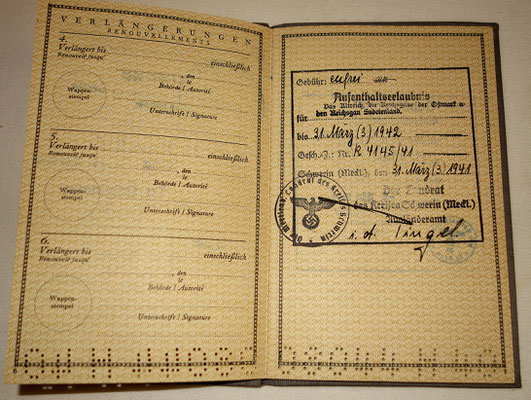 VERLÄNGERUNGEN
RENOUVELLEMENTS
4.
Verlängert bis
Renouvelé jusqu'
einschließlich
, den
le
Behörde / Autorité
Wappen-
stempel
Unterschrift / Signature
5.
Verlängert bis
Renouvelé jusqu'
einschließlich
, den
le
Behörde / Autorité
Wappen-
stempel
Unterschrift / Signature
6.
Verlängert bis
Renouvelé jusqu'
einschließlich
, den
le
Behörde / Autorité
Wappen-
stempel
Unterschrift / Signature
Gebühr:
Aufenthaltserlaubnis
Das Altreich, die Reichsgaue der Ostmark u
für den Reichsgau Sudetenland.
bis 31. März (3) 1942
Gesch.-Z.: Nr. R 4145/41
Schwerin (Meckl.), den 31. März (3) 1941
Der Landrat
des Kreises Schwerin (Meckl.)
Ausländeramt